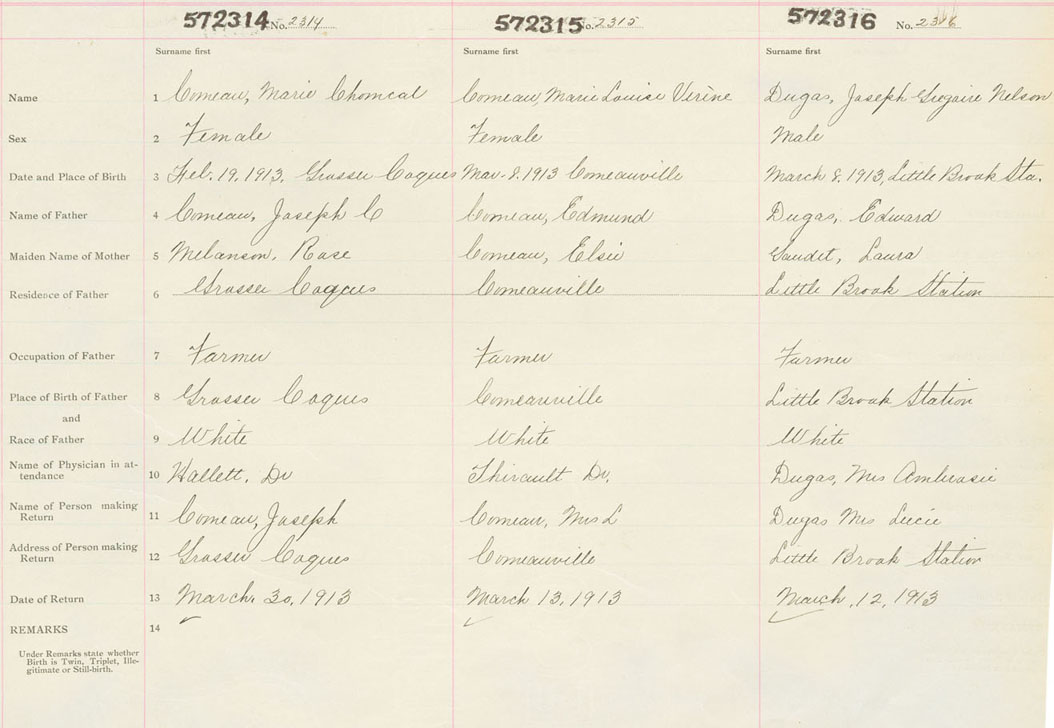 572314 No. 2314 572315 No. 2315 572316 No. 2316
Surname first Surname first Surname first
Name 1 Comeau, Marie Chomcal Comeau, Marie Louise Verine Dugas, Joseph Gregoire Nelson
Sex 2 Female Female Male
Date and Place of Birth 3 Feb. 19, 1913, Grosser Coques Mar. 8, 1913 Comeauville March 8, 1913, Little Brook Sta.
Name of Father 4 Comeau, Joseph C Comeau, Edmund Dugas, Edward
Maiden Name of Mother 5 Melanson, Rose Comeau, Elsie Gaudet, Laura
Residence of Father 6 Grosser Coques Comeauville Little Brook Station
Occupation of Father 7 Farmer Farmer Farmer
Place of Birth of Father 8 Grosser Coques Comeauville Little Brook Station
and
Race of Father 9 White White White
Name of Physician in at-
tendance 10 Hallett, Dr Thivault Dr. Dugas, Mrs Ambrosie
Name of Person making
Return 11 Comeau, Joseph Comeau, Mrs L Dugas Mrs Lucie
Address of Person making
Return 12 Grosser Coques Comeauville Little Brook Station
Date of Return 13 March, 30, 1913 March 13, 1913 March, 12, 1913
REMARKS 14
Under Remarks state whether
Birth is Twin, Triplet, Ille-
gitimate or Still-birth.